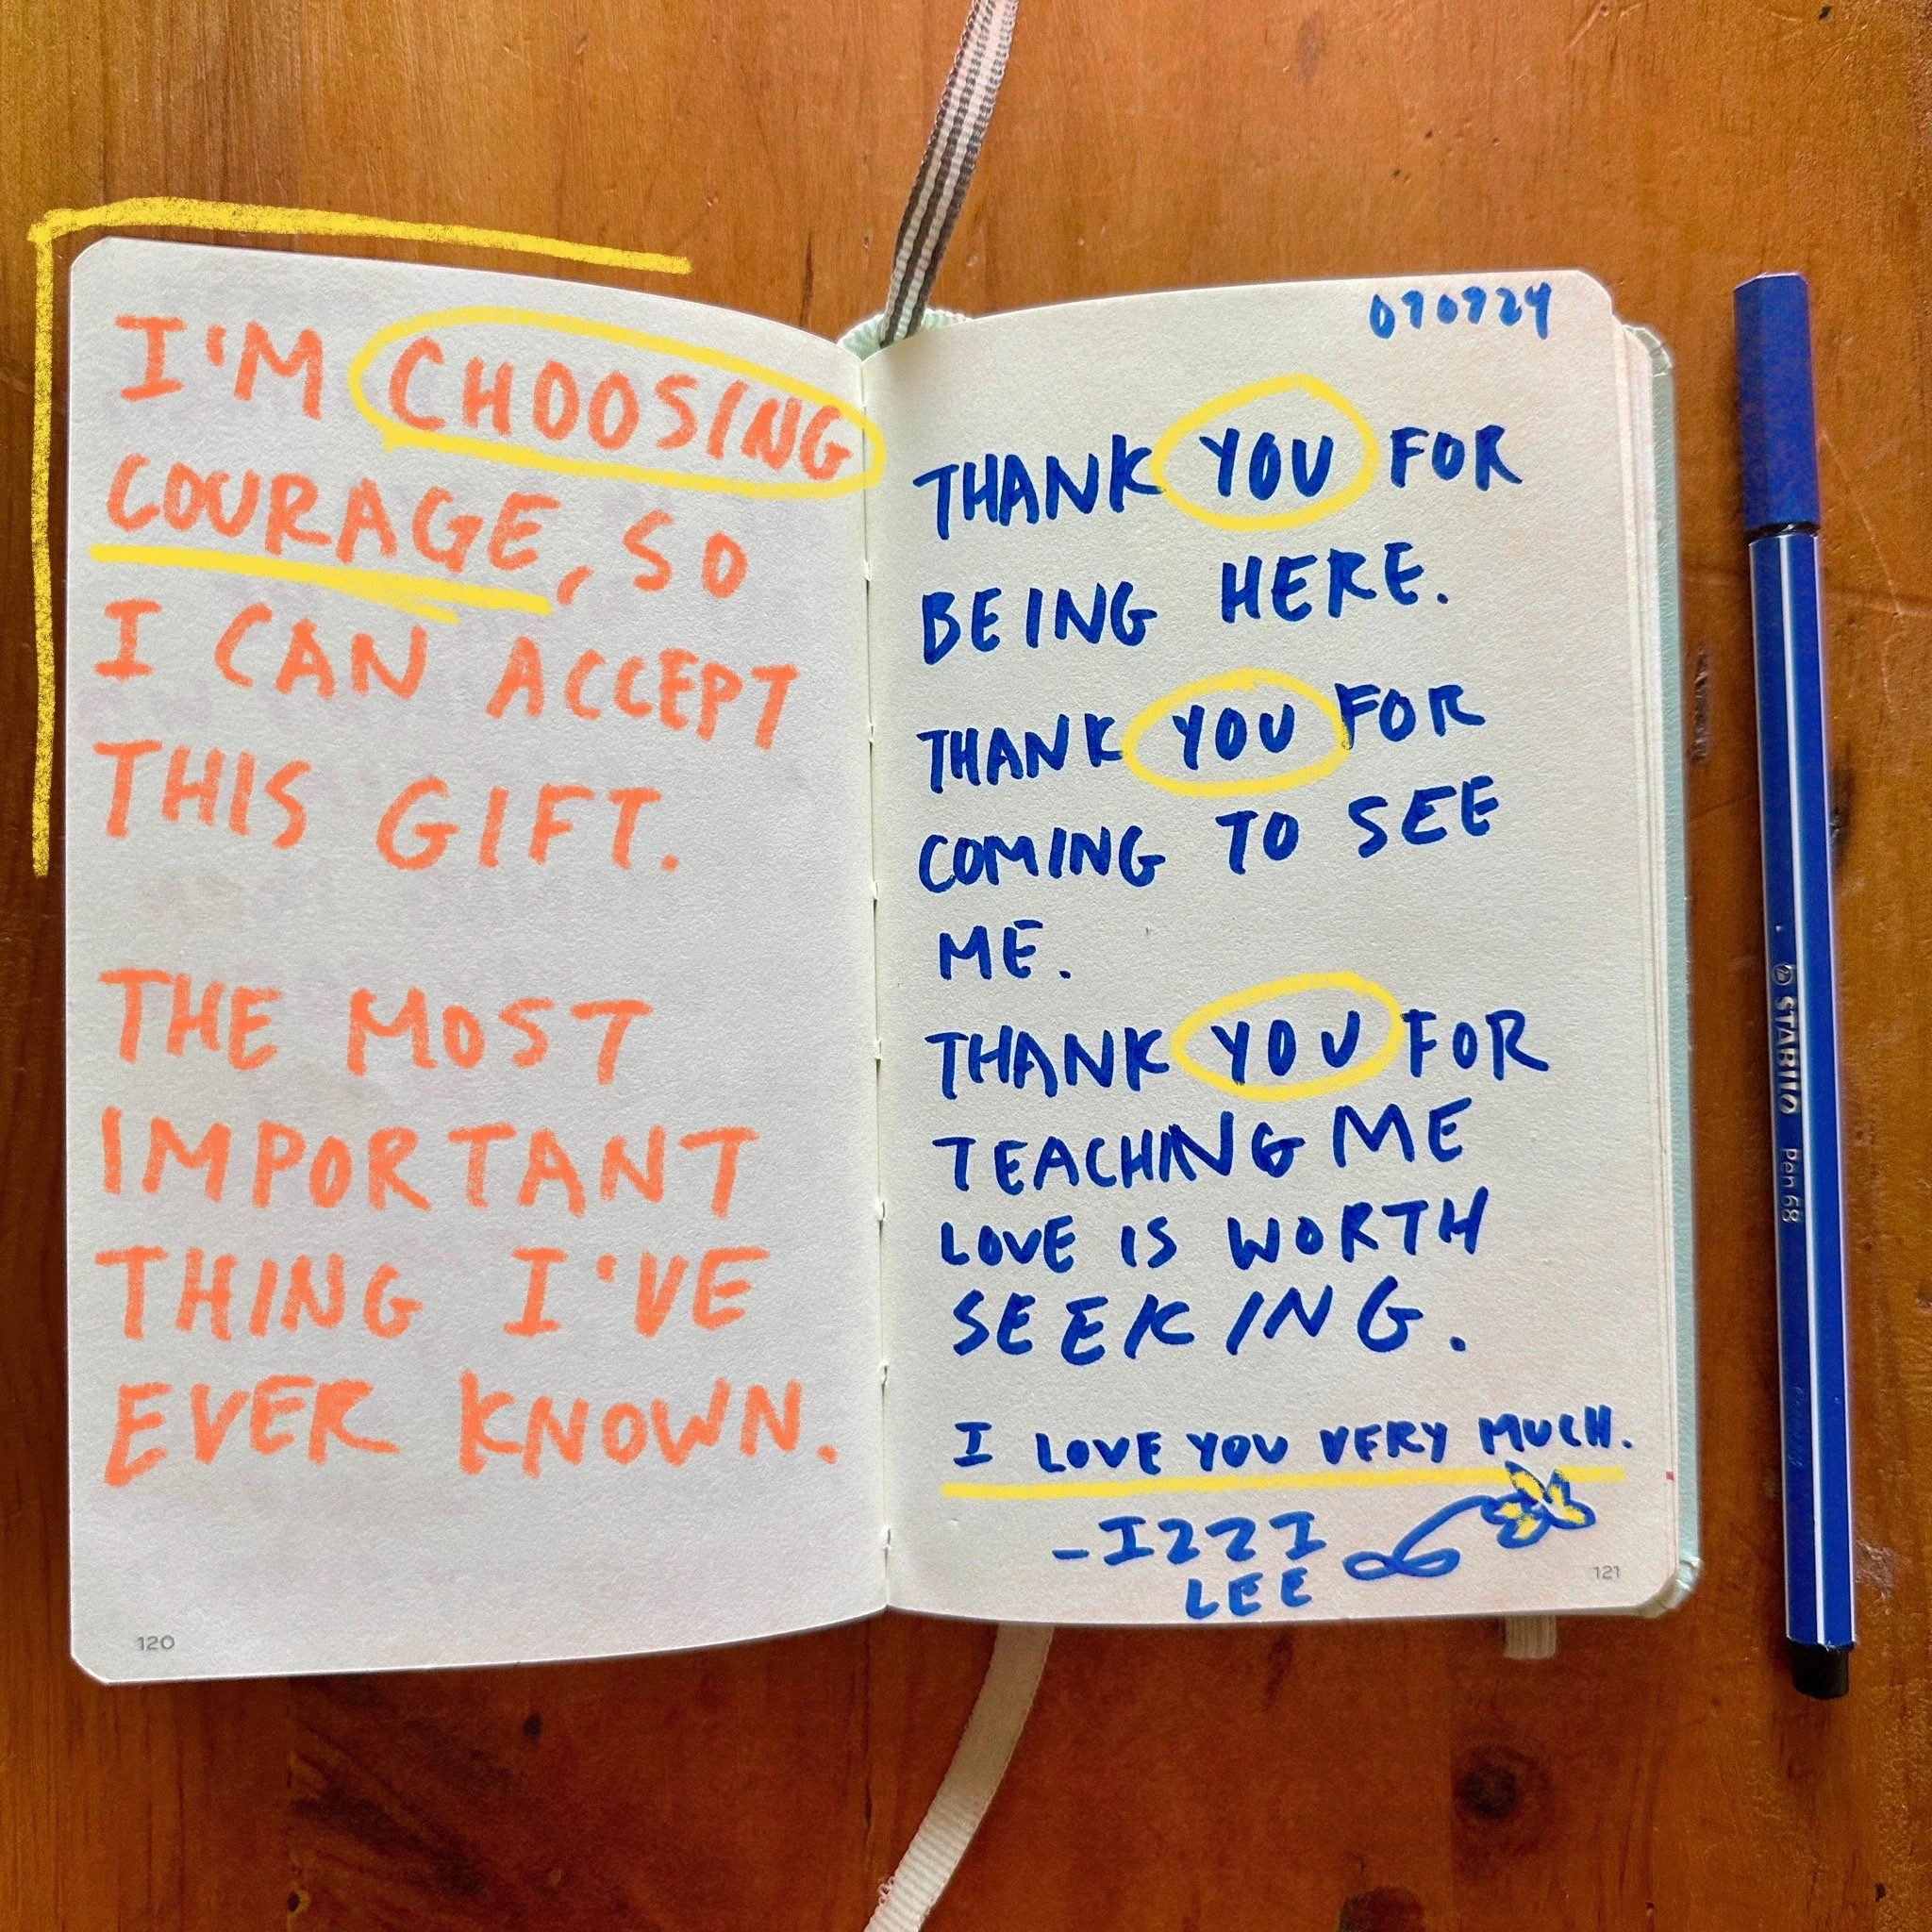 I'M CHOOSING
COURAGE, SO
I CAN ACCEPT
THIS GIFT.
THE MOST
IMPORTANT
THING I'VE
EVER KNOWN.
120
070724
THANK YOU FOR
BEING HERE.
THANK YOU FOR
COMING TO SEE
ME.
THANK YOU FOR
TEACHING ME
LOVE IS WORTH
SEEKING.
I LOVE YOU VERY MUCH.
-IZZI
LEE
121
STABILO Pen 68